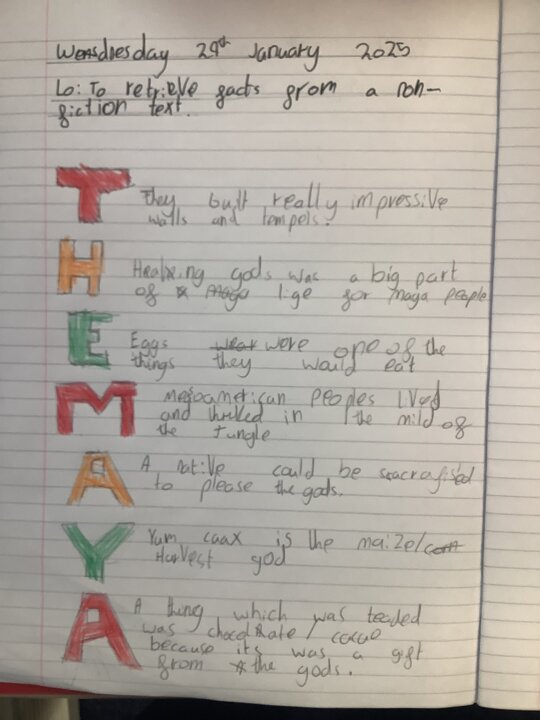 Wensdnesday 29th January 2025
Lo: To retrieve facts from a non-
fiction text.
T They built really impressive
walls and tempels.
H Healxing gods was a big part
of maya life for maya people
E Eggs wear were one of the
things they would eat
M mesoamerican peoples lived
and in the mild of
the Jungle
A A native could be
to please the gods.
Y Yum caax is the maize/corn
Harvest god
A A thing which was teaded
was chocolate / cacao
because its was a gift
from the gods.